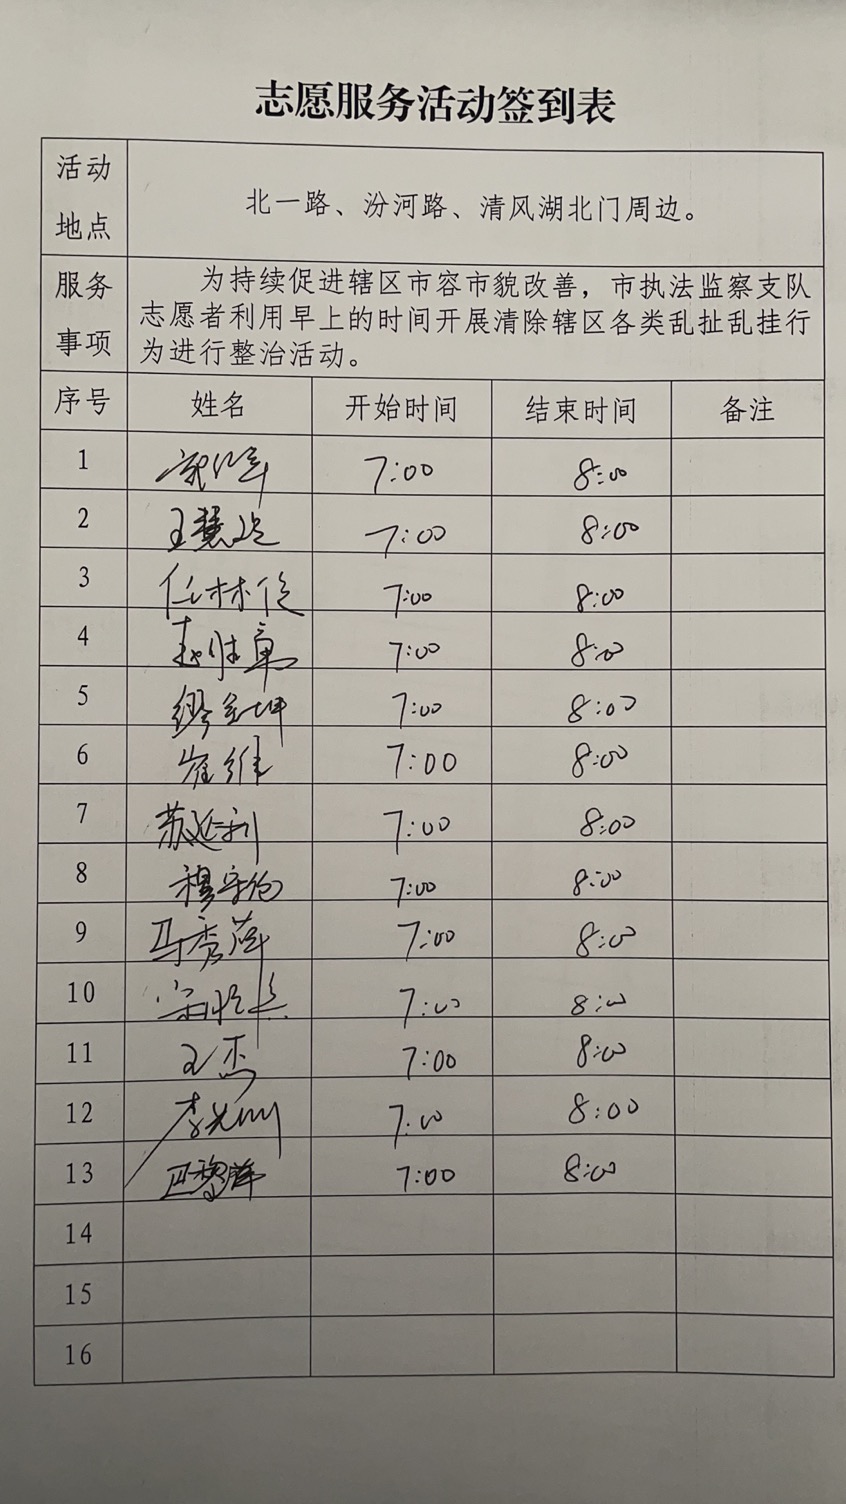 志愿服务活动签到表
活动地点 北一路、汾河路、清风湖北门周边。
服务事项 为持续促进辖区市容市貌改善，市执法监察支队
志愿者利用早上的时间开展清除辖区各类乱扯乱挂行
为进行整治活动。
序号 姓名 开始时间 结束时间 备注
1 7:00 8:00
2 王慧 7:00 8:00
3 任林 7:00 8:00
4 7:00 8:00
5 缪金坤 7:00 8:00
6 崔维 7:00 8:00
7 苏延利 7:00 8:00
8 穆 7:00 8:00
9 马秀萍 7:00 8:00
10 7:00 8:00
11 王杰 7:00 8:00
12 李光 7:00 8:00
13 7:00 8:00
14
15
16